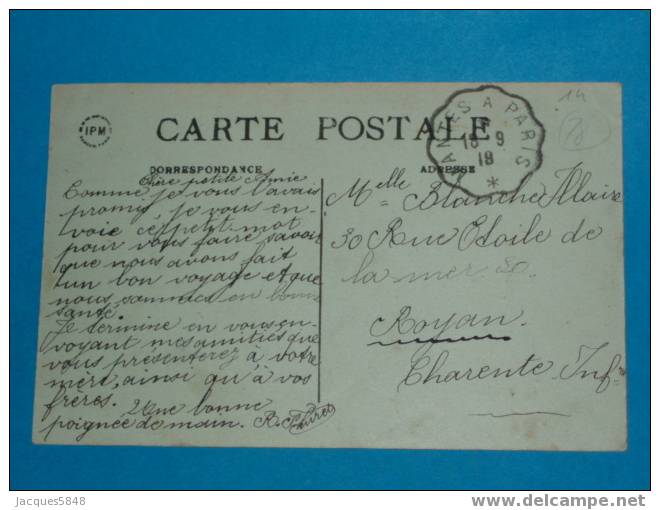 IPM
CARTE POSTALE
CORRESPONDANCE
ADRESSE
NANTES A PARIS
18 9
18
14
Chère petite Amie
Comme je vous l'avais
promis, je vous en-
voie ce petit mot
pour vous faire savoir
que nous avons fait
un bon voyage et que
nous sommes en bonne
santé.
Je termine en vous en-
voyant mes amitiés que
vous présenterez à votre
mère, ainsi qu'à vos
frères.
Une bonne
poignée de main. R.
Melle Blanche Allaire
30 Rue Etoile de
la mer 30.
Royan.
Charente Infre
Jacques5848
delcampe.net